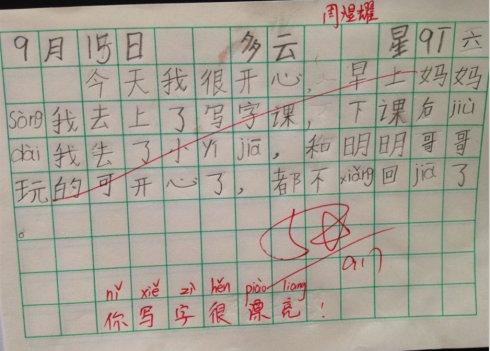 周湦耀
9月15日 多云 星qī六
今天我很开心，早上妈妈
sòng我去上了写字课，下课后jiù
dài我去了小yí jiā，和明明哥哥
玩的可开心了，都不xiǎng回jiā了
。
5☆
9.17
nǐ xiě zì hěn piào liang
你写字很漂亮！